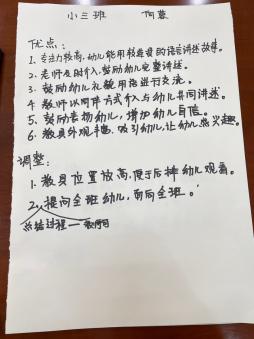 小三班 何蓉
优点:
1. 专注力较高,幼儿能用较连贯的语言讲述故事。
2. 老师及时介入,鼓励幼儿完整讲述。
3. 鼓励幼儿礼貌用语进行交流。
4. 教师以同伴方式介入与幼儿共同讲述。
5. 鼓励表扬幼儿,增加幼儿自信。
6. 教具外观丰富,吸引幼儿,让幼儿感兴趣。
调整:
1. 教具位置放高,便于后排幼儿观看。
2. 提问全班幼儿,面向全班。
总结过程—教师